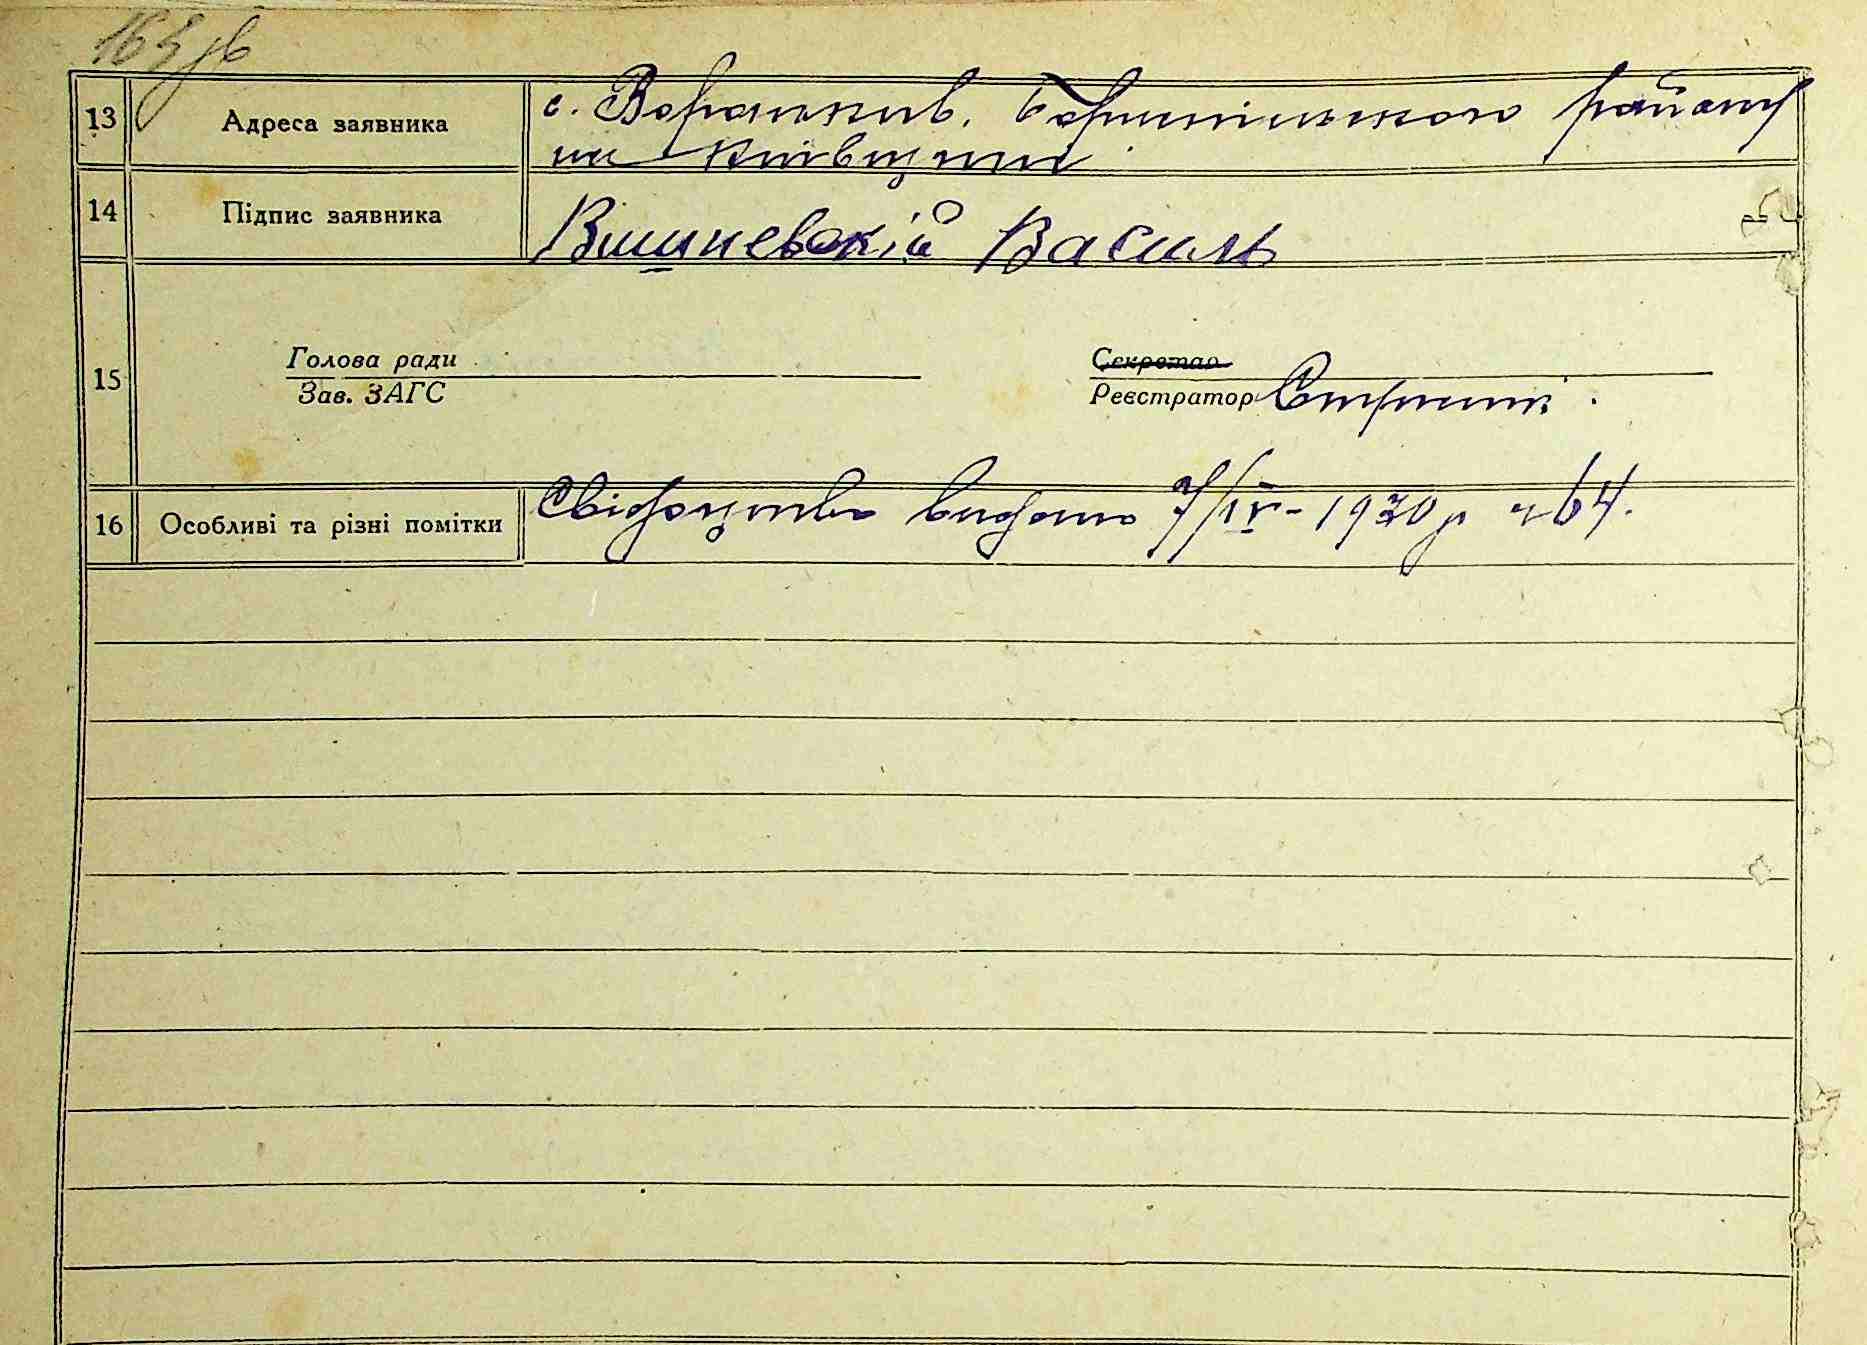 163 зв
13 Адреса заявника с. Вороньків, Бориспільського району
на Київщині
14 Підпис заявника Вишневскій Василь
Голова ради Секретар
15
Зав. ЗАГС Реєстратор
16 Особливі та різні помітки Свідоцтво видано 7/IV-1930 р ч 64.